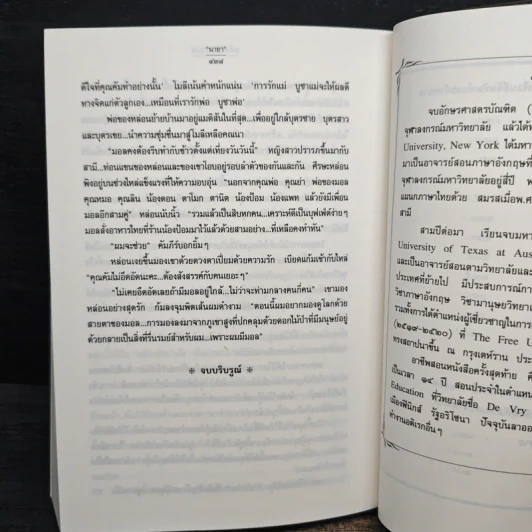 "นายา"
๔๒๘
ดีใจที่คุณคัมทำอย่างนั้น' โมลีเน้นคำหนักแน่น 'การรักแม่ บูชาแม่จะให้ผลดี
ทางจิตแก่ตัวลูกเอง...เหมือนที่เรารักพ่อ บูชาพ่อ'
พ่อของหล่อนย้ายบ้านมาอยู่แมดิสันในที่สุด...เพื่ออยู่ใกล้บุตรชาย บุตรสาว
และบุตรเขย...นำความชุ่มชื่นมาสู่โมลีเหลือคณนา
"มอลคงต้องรีบทำกับข้าวตั้งแต่เที่ยงวันวันนี้" หญิงสาวปรารภขึ้นมากับ
สามี...ท่อนแขนของหล่อนและของเขาโอบอยู่รอบลำตัวของกันและกัน ศีรษะหล่อน
พิงอยู่บนช่วงไหล่แข็งแรงที่ให้ความอบอุ่น "นอกจากคุณพ่อ คุณย่า พ่อของมอล
คุณหมอ คุณลิน น้องตอน ดาโมก ดานิต น้องป้อม น้องแพท แล้วยังมีเพื่อน
มอลอีกสามคู่" หล่อนนับนิ้ว "รวมแล้วเป็นสิบหกคน...เคราะห์ดีเป็นบุฟเฟ่ต์ง่ายๆ
มอลสั่งอาหารไทยที่ร้านน้องป้อมมาไว้แล้วด้วยสามอย่าง...ที่เหลือคงทำทัน"
"ผมจะช่วย" คัมภีร์บอกยิ้มๆ
หล่อนเงยขึ้นมองเขาด้วยดวงตาเปี่ยมด้วยความรัก เบียดแก้มเข้ากับไหล่
"คุณคัมไม่อึดอัดนะคะ...ต้องสังสรรค์กับคนเยอะๆ"
"ไม่เคยอึดอัดเลยถ้ามีมอลอยู่ใกล้...ไม่ว่าจะท่ามกลางคนกี่คน" เขามอง
หล่อนอย่างสุดรัก ก้มลงจุมพิตเส้นผมดำงาม "ตอนนี้ผมอยากมองดูโลกด้วย
สายตาของมอล...การมองลงมาจากภูเขาสูงที่ปกคลุมด้วยดอกไม้ป่าที่มีมนุษย์อยู่
ด้วยกลายเป็นสิ่งที่รื่นรมย์สำหรับผม...เพราะผมมีมอล"
❈ จบบริบูรณ์ ❈
จบอักษรศาสตรบัณฑิต (
จุฬาลงกรณ์มหาวิทยาลัย แล้วได้ท
University, New York ได้มหา
มาเป็นอาจารย์สอนภาษาอังกฤษที่
จุฬาลงกรณ์มหาวิทยาลัยอยู่สี่ปี
แผนกภาษาไทยด้วย สมรสเมื่อพ.ศ
สามี
สามปีต่อมา เรียนจบมหา
University of Texas at Aus
และเป็นอาจารย์สอนตามวิทยาลัยและ
ประเทศที่ย้ายไป มีประสบการณ์กา
วิชาภาษาอังกฤษ วิชามานุษยวิทยา
รวมทั้งการได้ตำแหน่งผู้เชี่ยวชาญในการ
(๒๕๑๙-๒๕๒๐) ที่ The Free U
ทางสถาปนาขึ้น ณ กรุงเตห์ราน ประ
อาชีพสอนหนังสือครั้งสุดท้าย คื
เป็นเวลา ๑๔ ปี สอนประจำในตำแหน
Education ที่วิทยาลัยชื่อ De Vry
เมืองฟีนิกส์ รัฐอริโซนา ปัจจุบันลาออ
ทำงานอดิเรกอื่นๆ